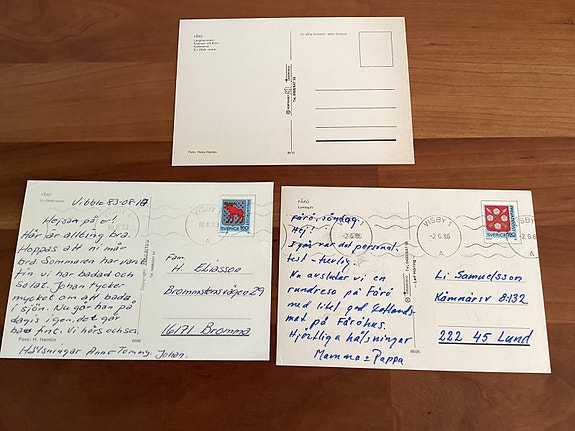 FÅRÖ
Foto: Hans Hemlin
Vibble 83-08-17
Hejsan på er!
Här är allting bra.
Hoppas att ni mår
bra. Sommaren har varit
fin vi har badad och
solat. Johan tycker
mycket om att bada
i sjön. Nu går han på
dagis igen, det går
bra fint. Vi hörs och ses.
Hälsningar Anne Tommy, Johan.
Foto: H. Hemlin
VISBY
18.8.83
A
SVERIGE
Fam.
H. Eliasson
Brommstensvägen 29
16171 Bromma
FÅRÖ
Fårö, söndag.
Hej!
Igår var det personal-
fest - trevlig.
Nu avslutar vi en
rundresa på Fårö
med litet god Gotlands-
mat på Fåröhus.
Hjärtliga hälsningar
Mamma o Pappa
VISBY
-2.6.86
A
-2.6.86
SVERIGE
Li Samuelsson
Kämnärsv 8:132
222 45 Lund